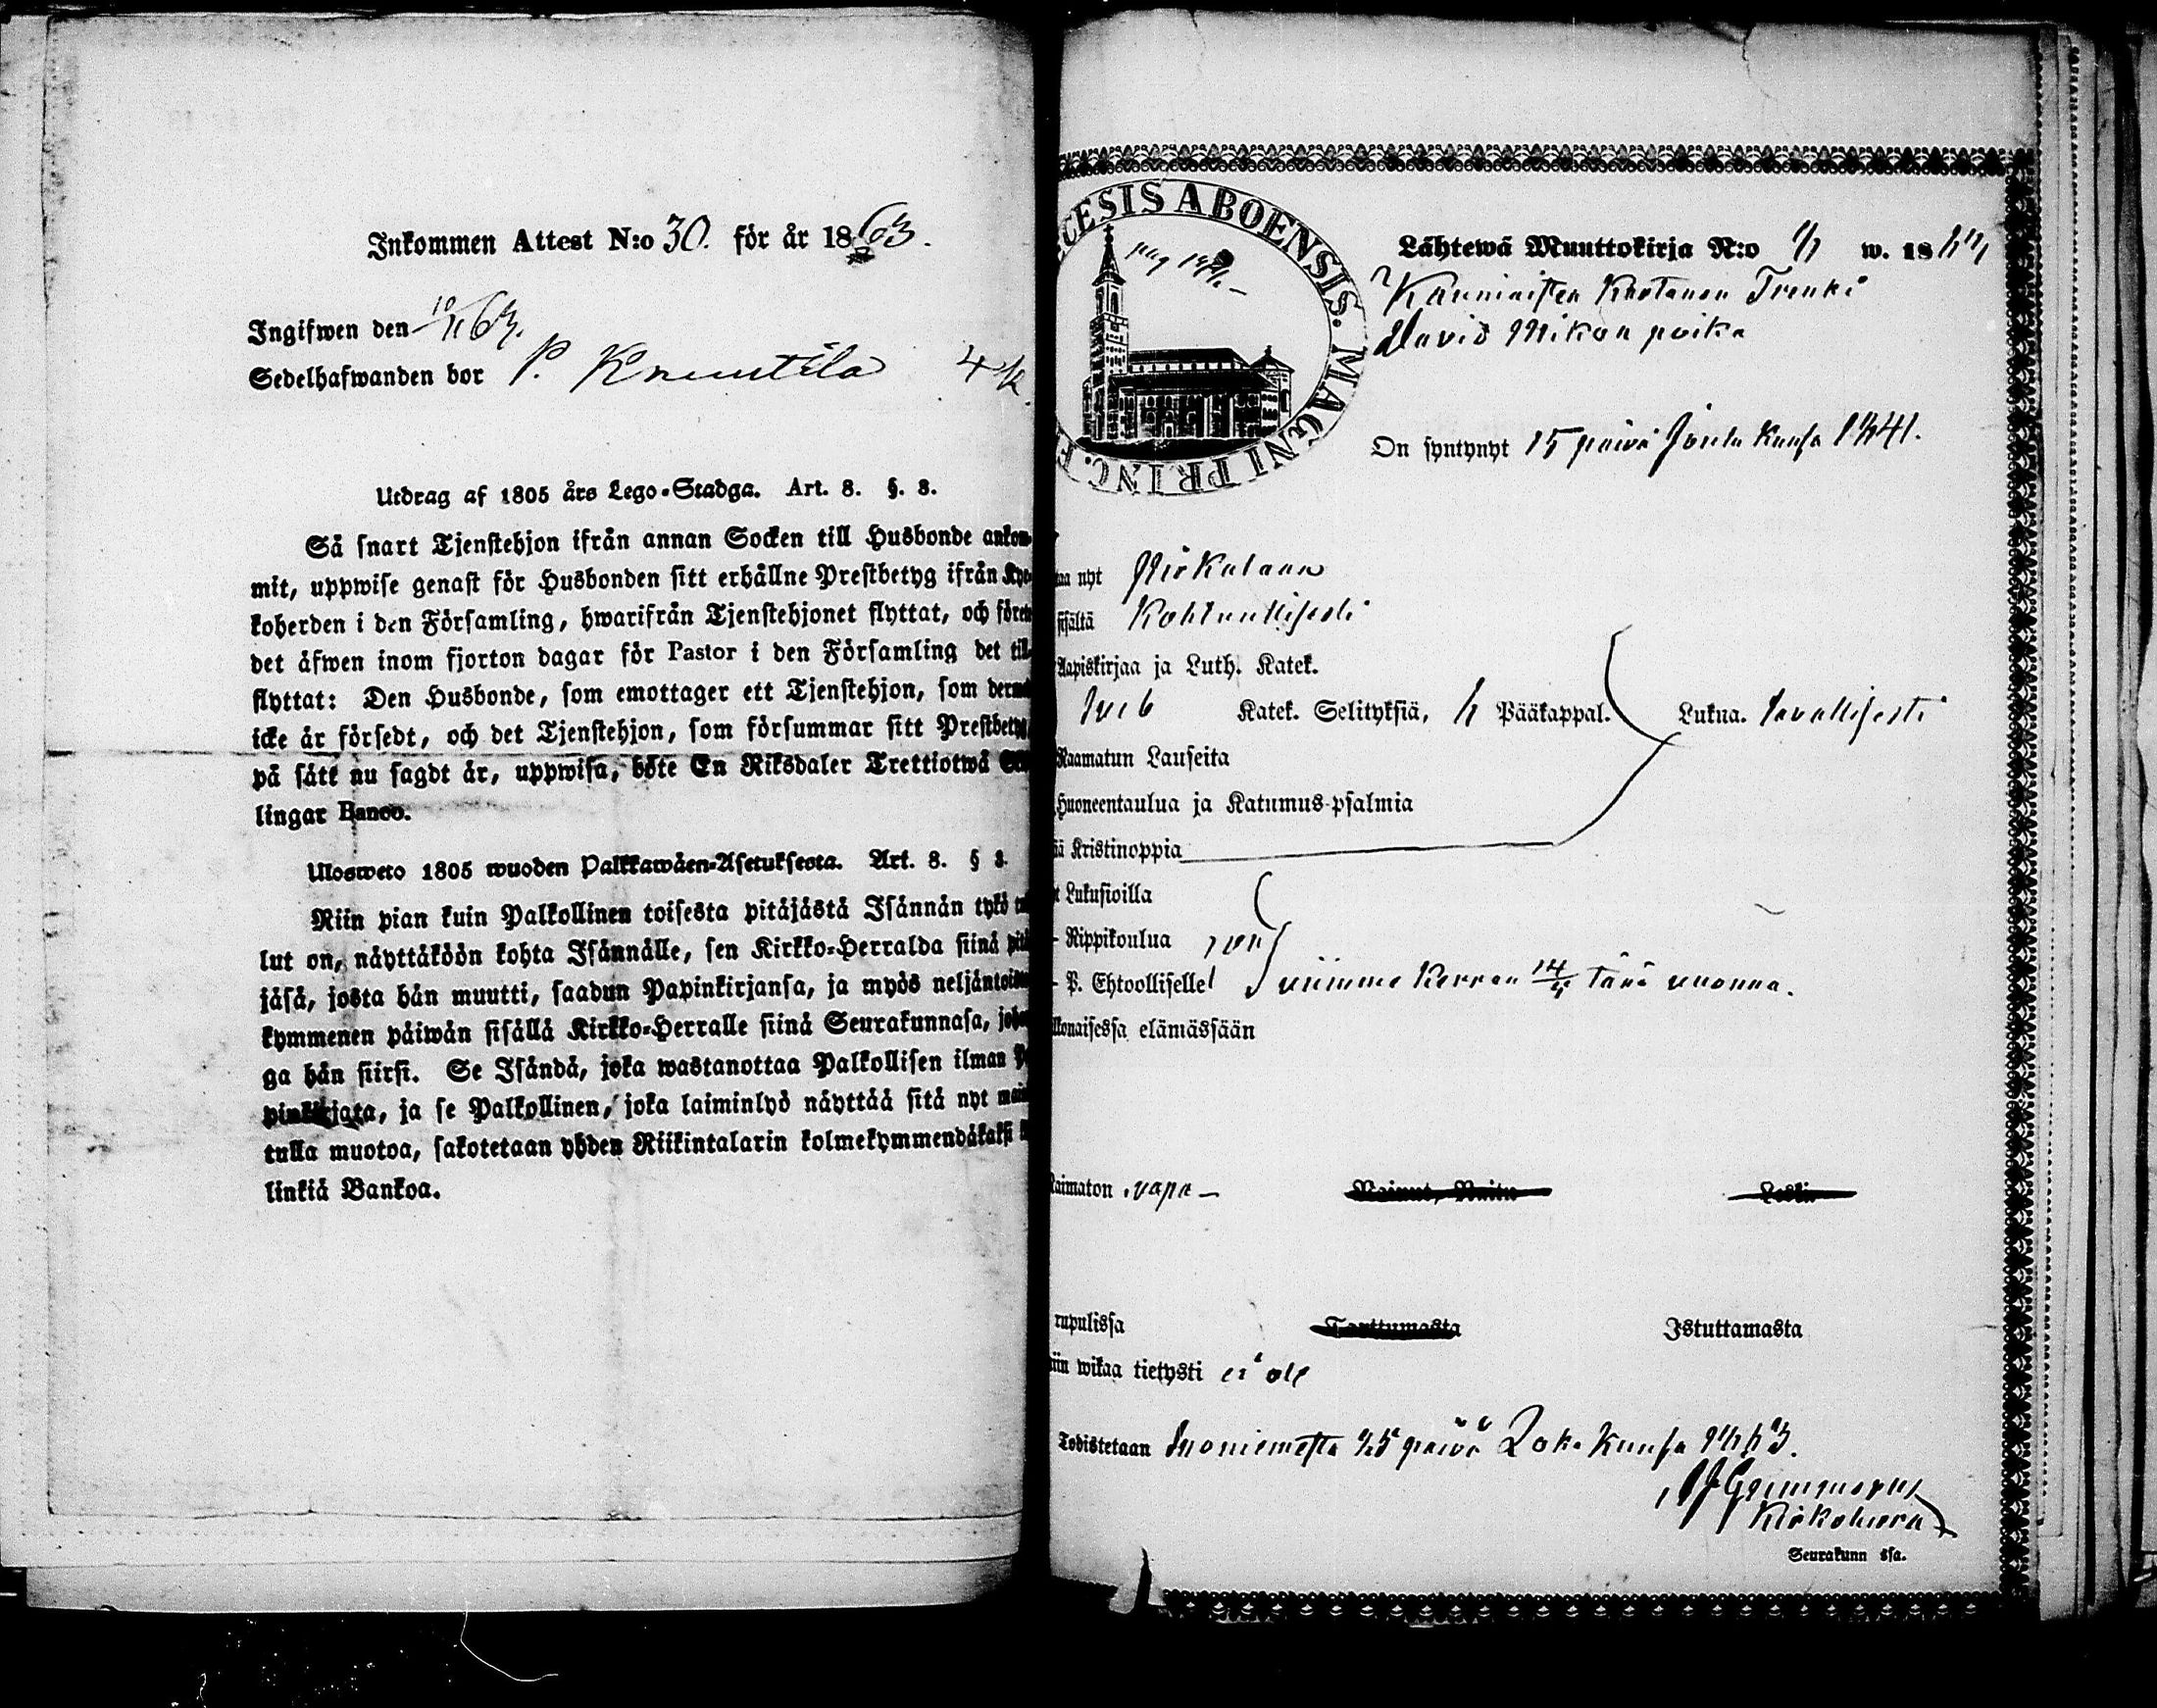 Inkommen Attest N:o 30. för år 1863.
Ingifwen den 10/11 63.
Sedelhafwanden bor P. Knuutila
Utdrag af 1805 års Lego-Stadga. Art. 8. §. 8.
Så snart Tjenstehjon ifrån annan Socken till Husbonde ankom-
mit, uppwise genast för Husbonden sitt erhållne Prestbetyg ifrån Kyr-
koherden i den Församling, hwarifrån Tjenstehjonet flyttat, och före
det äfwen inom fjorton dagar för Pastor i den Församling det till-
flyttat: Den Husbonde, som emottager ett Tjenstehjon, som dermed
icke är försedt, och det Tjenstehjon, som försummar sitt Prestbetyg
på sätt nu sagdt är, uppwisa, böte En Riksdaler Trettiotwå
lingar Banco.
Ulosweto 1805 wuoden Palkkawäen-Asetuksesta. Art. 8. § 8.
Niin pian kuin Palkollinen toisesta pitäjästä Isännän tykö tul
lut on, näyttäköön kohta Isännälle, sen Kirkko-Herralda siinä pitä
jäsä, josta hän muutti, saadun Papinkirjansa, ja myös neljäntoista
kymmenen päiwän sisällä Kirkko-Herralle siinä Seurakunnasa, joho
ga hän siirsi. Se Isändä, joka wastanottaa Palkollisen ilman Pa
pinkirjata, ja se Palkollinen, joka laiminlyö näyttää sitä nyt mai
tulla muotoa, sakotetaan yhden Riikintalarin kolmekymmendäkaksi
linkiä Bankoa.
CESIS ABOENSIS. MAGNI PRINC. F
Lähtewä Muuttokirja N:o w. 18
Kauniaisten Trenki
David Mikon poika
On syntynyt 15 päivä Joulu Kuusa 1841.
nyt Pirkalaan
sisältä Kohtuullisesti
Aapiskirjaa ja Luth. Katek.
Katek. Selityksiä, Pääkappal. Lukua. tavallisesti
Raamatun Lauseita
Huoneentaulua ja Katumus-psalmia
Kristinoppia
Lukusioilla
Rippikoulua
P. Ehtoollisellel viimme kerran tänä vuonna.
elämässään
vapa
Nainut, Naitu
Leski
rupulissa
Tarttumasta
Istuttamasta
wikaa tietysti ei ole
Todistetaan Suoniemesta 25 päivä Loka Kuusa 1863.
Kirkoherra
Seurakunn ssa.